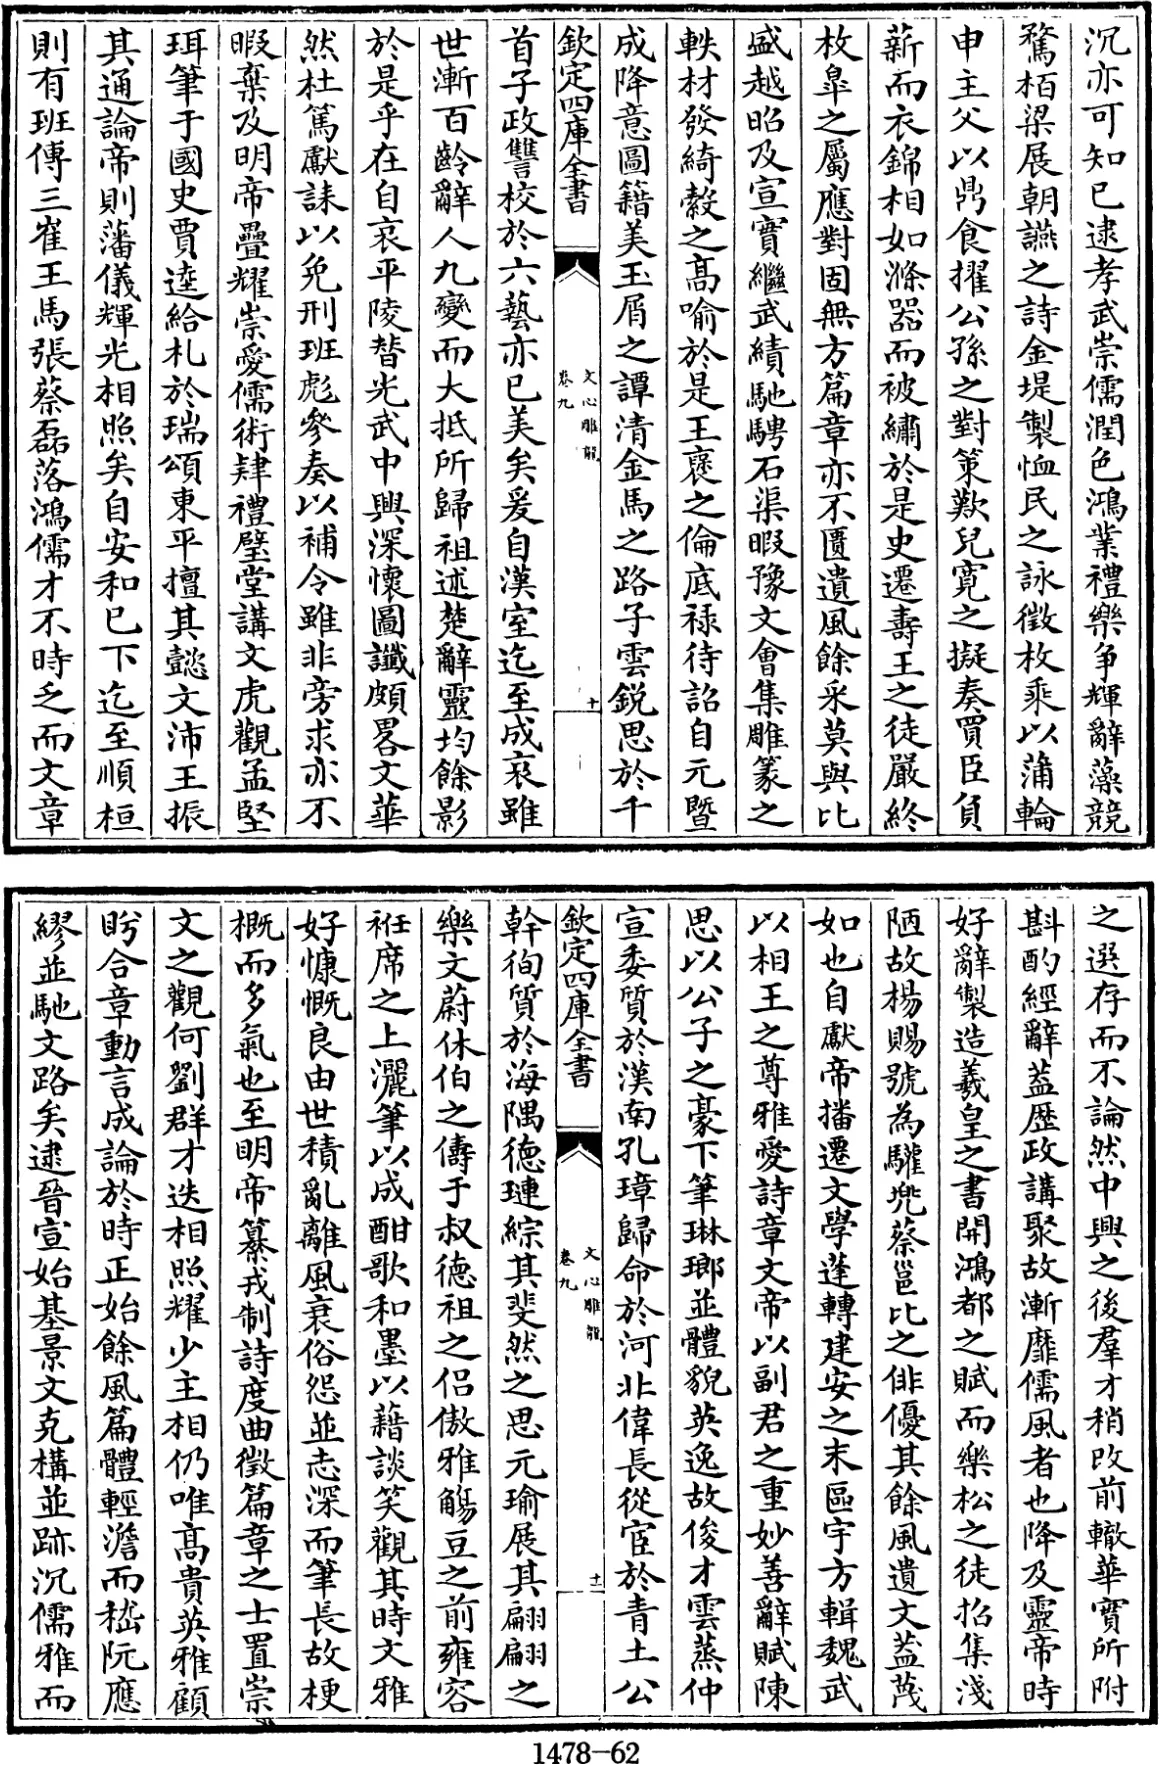 沉亦可知已逮孝武崇儒潤色鴻業禮樂争輝辭藻競
騖栢梁展朝讌之詩金堤製恤民之詠徵枚乘以蒲輪
申主父以鼎食擢公孫之對策歎兒寛之擬奏買臣負
薪而衣錦相如滌器而被繡於是史遷壽王之徒嚴終
枚臯之屬應對固無方篇章亦不匱遺風餘采莫與比
盛越昭及宣實繼武績馳騁石渠暇豫文會集雕篆之
軼材發綺縠之髙喻於是王襃之倫底禄待詔自元暨
成降意圖籍美玉屑之譚清金馬之路子雲鋭思於千
欽定四庫全書
文心雕龍
卷九
十
首子政讐校於六藝亦已美矣爰自漢室迄至成哀雖
世漸百齡辭人九變而大抵所歸祖述楚辭靈均餘影
於是乎在自哀平陵替光武中興深懐圖讖頗畧文華
然杜篤獻誄以免刑班彪參奏以補令雖非旁求亦不
暇棄及明帝疊耀崇愛儒術肄禮璧堂講文虎觀孟堅
珥筆于國史賈逵給札於瑞頌東平擅其懿文沛王振
其通論帝則藩儀輝光相照矣自安和已下迄至順桓
則有班傅三崔王馬張蔡磊落鴻儒才不時乏而文章
之選存而不論然中興之後羣才稍改前轍華實所附
斟酌經辭葢歴政講聚故漸靡儒風者也降及靈帝時
好辭製造羲皇之書開鴻都之賦而樂松之徒招集淺
陋故楊賜號為驩兜蔡邕比之俳優其餘風遺文葢蔑
如也自獻帝播遷文學蓬轉建安之末區宇方輯魏武
以相王之尊雅愛詩章文帝以副君之重妙善辭賦陳
思以公子之豪下筆琳瑯並體貌英逸故俊才雲蒸仲
宣委質於漢南孔璋歸命於河北偉長從宦於青土公
欽定四庫全書
文心雕龍
卷九
十一
幹徇質於海隅徳璉綜其斐然之思元瑜展其翩翩之
樂文蔚休伯之儔于叔徳祖之侣傲雅觴豆之前雍容
袵席之上灑筆以成酣歌和墨以藉談笑觀其時文雅
好慷慨良由世積亂離風衰俗怨並志深而筆長故梗
概而多氣也至明帝纂戎制詩度曲徵篇章之士置崇
文之觀何劉群才迭相照耀少主相仍唯髙貴英雅顧
盻合章動言成論於時正始餘風篇體輕澹而嵇阮應
繆並馳文路矣逮晉宣始基景文克構並跡沉儒雅而
1478-62